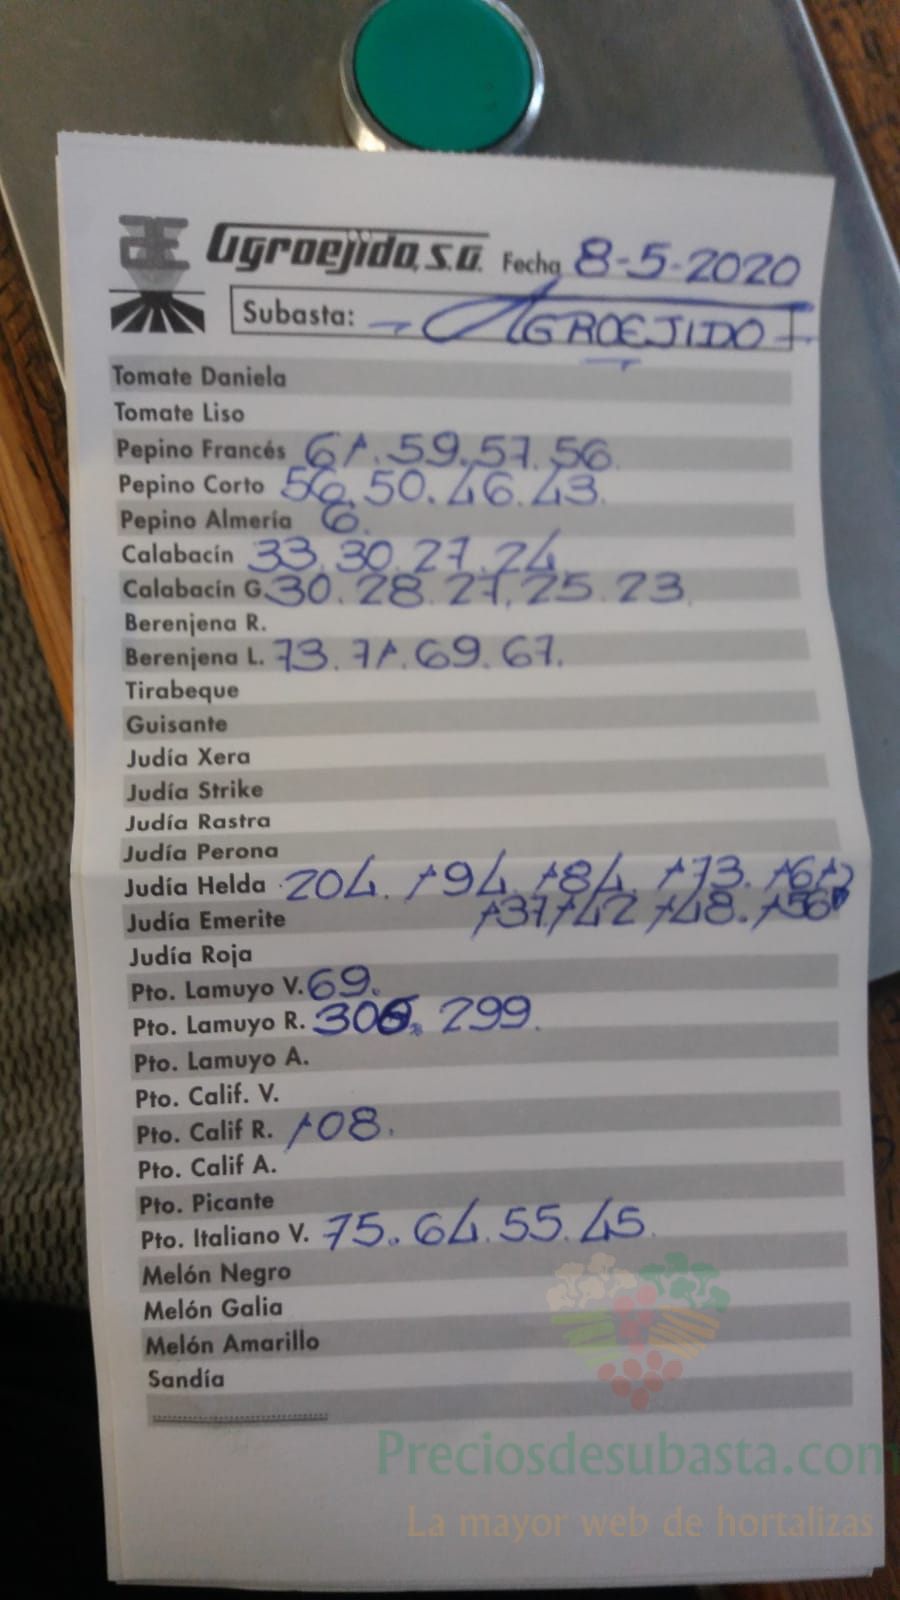 Agroejido, S.A. Fecha 8-5-2020
Subasta: - AGROEJIDO -
Tomate Daniela
Tomate Liso
Pepino Francés 61.59.57.56.
Pepino Corto 56.50.46.43.
Pepino Almería 6.
Calabacín 33.30.27.24
Calabacín G. 30.28.27.25.23.
Berenjena R.
Berenjena L. 73.71.69.67.
Tirabeque
Guisante
Judía Xera
Judía Strike
Judía Rastra
Judía Perona
Judía Helda 204. 194. 184. 173.
Judía Emerite 137. 142 148. 156
Judía Roja
Pto. Lamuyo V. 69.
Pto. Lamuyo R. 299.
Pto. Lamuyo A.
Pto. Calif. V.
Pto. Calif R. 108.
Pto. Calif A.
Pto. Picante
Pto. Italiano V. 75.64.55.45.
Melón Negro
Melón Galia
Melón Amarillo
Sandía
Preciosdesubasta.com
La mayor web de hortalizas